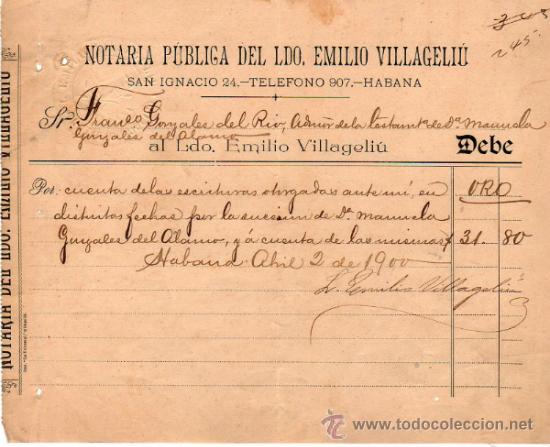 245.
NOTARIA PÚBLICA DEL LDO. EMILIO VILLAGELIÚ
SAN IGNACIO 24.—TELEFONO 907.—HABANA
Sr. Franco Gonzales del Rio, Admor de la Testamtª de Dª Manuela
Gonzales del Alamo
al Ldo. Emilio Villageliú Debe
Por cuenta de las escrituras otorgadas ante mí, en ORO
distintas fechas por la sucesion de Dª Manuela
Gonzales del Alamo, y á cuenta de las mismas $ 31. 80
Habana Abril 2 de 1900
L. Emilio Villageliú
NOTARIA DEL LDO. EMILIO VILLAGELIÚ
todocoleccion.net